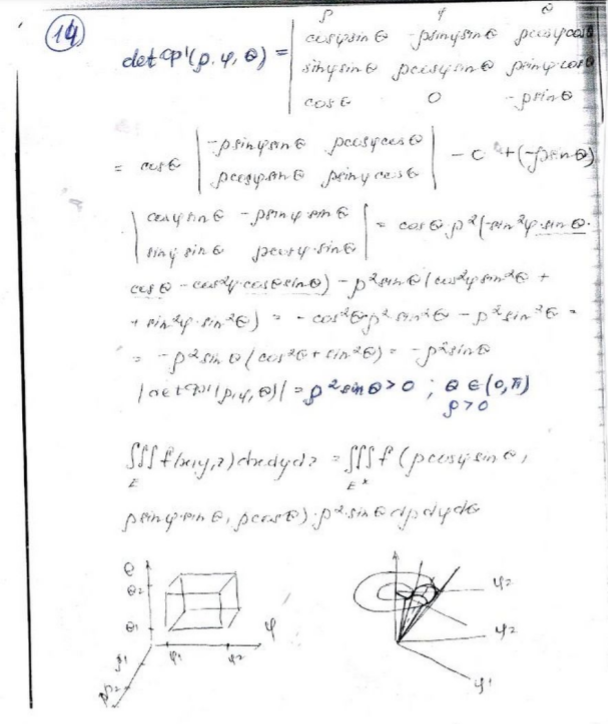 14
ρ φ θ
det φ'(ρ, φ, θ) = | cosφ sinθ -ρ sinφ sinθ ρ cosφ cosθ |
| sinφ sinθ ρ cosφ sinθ ρ sinφ cosθ |
| cosθ 0 -ρ sinθ |
= cosθ | -ρ sinφ sinθ ρ cosφ cosθ | - 0 + (-ρ sinθ)
| ρ cosφ sinθ ρ sinφ cosθ |
| cosφ sinθ -ρ sinφ sinθ | = cosθ · ρ² (-sin²φ · sinθ ·
| sinφ sinθ ρ cosφ · sinθ |
cosθ - cos²φ · cosθ sinθ) - ρ² sinθ (cos²φ sin²θ +
+ sin²φ · sin²θ) = - cos²θ ρ² sin²θ - ρ² sin²θ =
= -ρ² sinθ (cos²θ + sin²θ) = -ρ² sinθ
|det φ'(ρ, φ, θ)| = ρ² sinθ > 0 ; θ ∈ (0, π)
ρ > 0
∭ f(x, y, z) dx dy dz = ∭ f (ρ cosφ sinθ,
E E*
ρ sinφ sinθ, ρ cosθ) · ρ² sinθ dρ dφ dθ
θ
θ2 φ2
θ1 φ
ρ1 φ1 φ2 φ2
ρ2 φ1